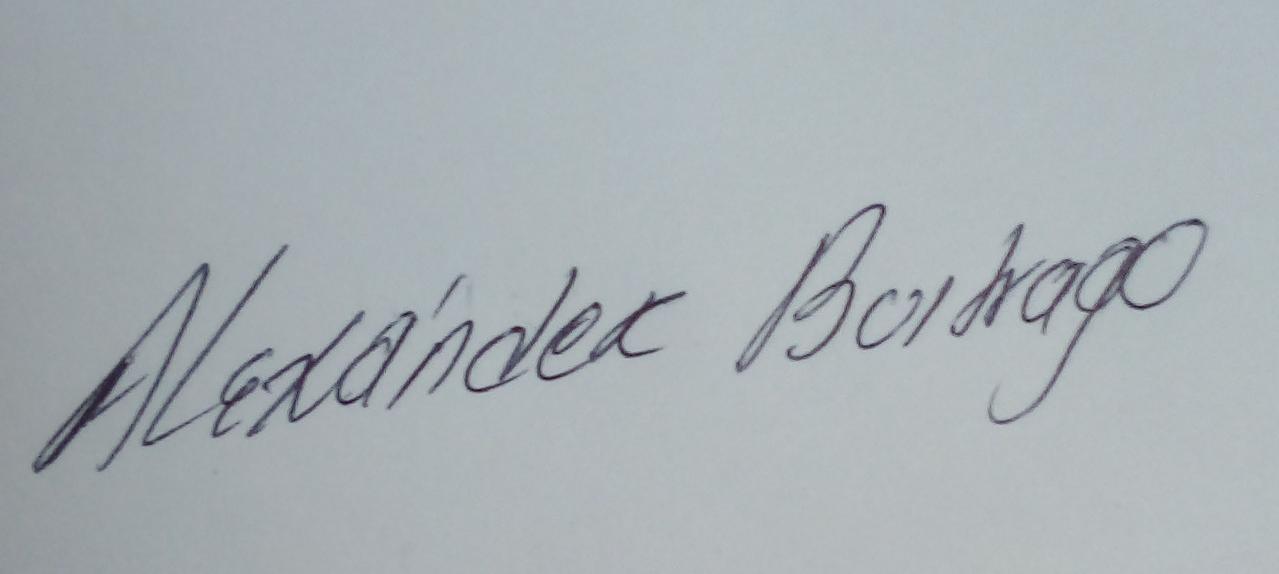 Alexánder Buitrago